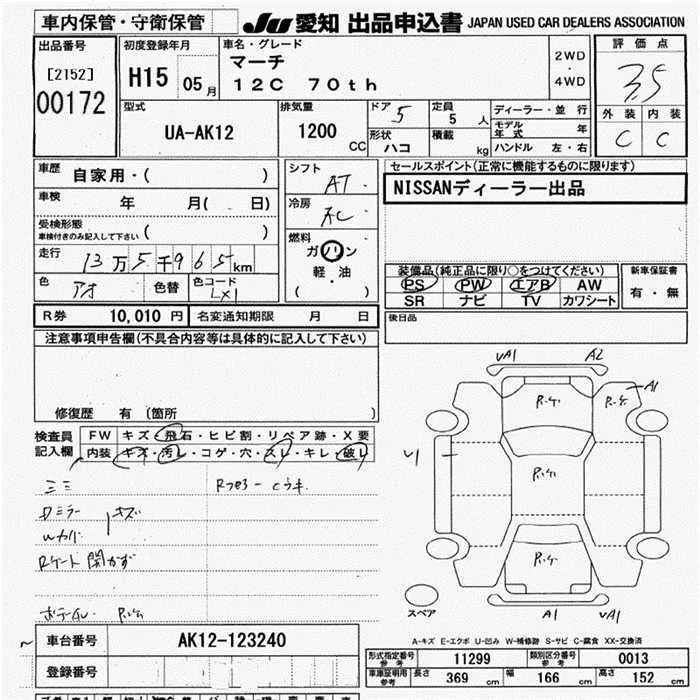 車内保管・守衛保管
JU 愛知 出品申込書 JAPAN USED CAR DEALERS ASSOCIATION
出品番号
[2152]
00172
初度登録年月
H15 05月
車名・グレード
マーチ
12C 70th
2WD
・
4WD
評価点
3.5
外装 内装
C C
型式
UA-AK12
排気量
1200
CC
ドア 5
形状 ハコ
定員 5 人
積載 kg
ディーラー・並行
モデル年式 年
ハンドル 左・右
車歴
自家用・( )
車検 年 月( 日)
受検形態
車検付きのみ記入して下さい ( )
走行 13万5千965km
色 アオ 色替 色コード LX1
シフト
AT
冷房
AC
燃料
ガソリン
・
軽・油
( )
セールスポイント(正常に機能するものに限ります)
NISSANディーラー出品
装備品(純正品に限り○をつけてください)
PS PW エアB AW
SR ナビ TV カワシート
新車保証書
有・無
後日品
R券 10,010 円 名変通知期限 月 日
注意事項申告欄(不具合内容等は具体的に記入して下さい)
修復歴 有 〔箇所 〕
検査員
記入欄
FW キズ・飛石・ヒビ割・リペア跡・X要
内装 キズ・汚レ・コゲ・穴・スレ・キレ・破レ
ミラー
キズ
開かず
vA1 A2
A1
U1
A1 vA1
スペア
A-キズ E-エクボ U-凹み W-補修跡 S-サビ C-腐食 XX-交換済
車台番号 AK12-123240
登録番号
形式指定番号 参考 11299 類別区分番号 参考 0013
車庫証明用 参考 長さ 369 cm 幅 166 cm 高さ 152 cm